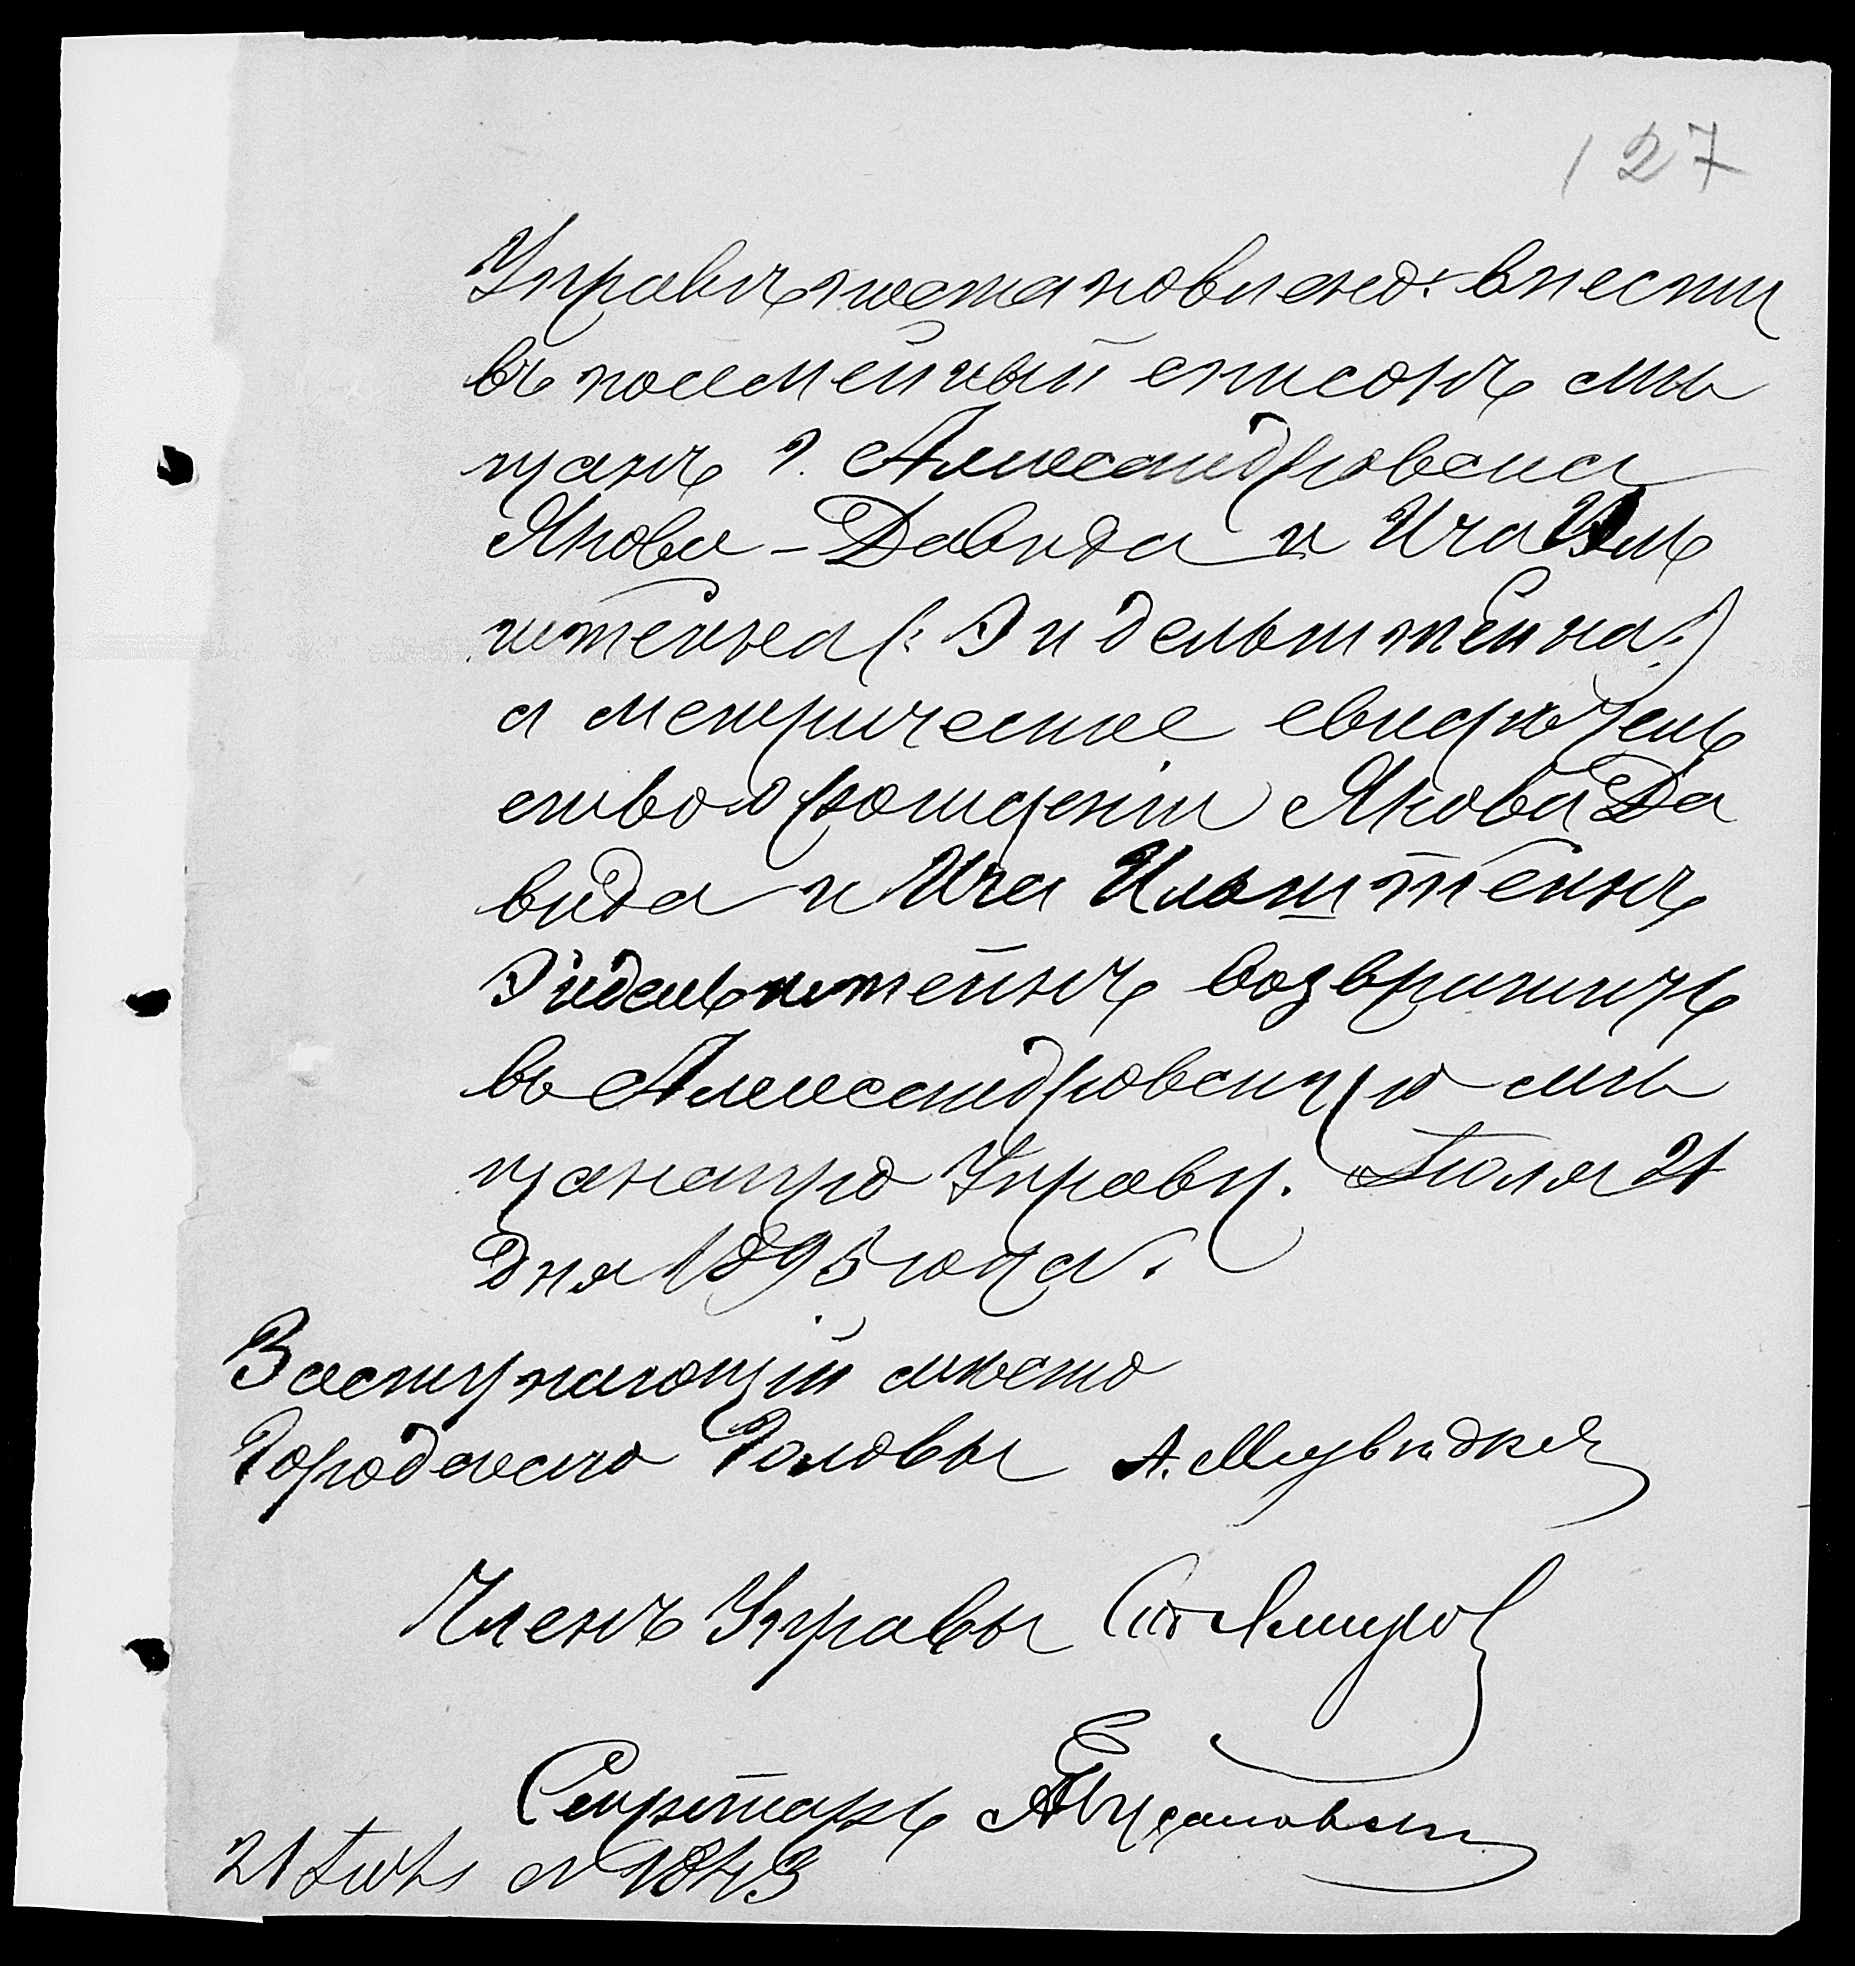 127
Управы постановлено: внести
въ посемейный списокъ мѣ
щанъ г. Александровска
Якова-Давида и Ича Иль
штейна (: Эйдельштейна :)
а метрическое свидѣтель
ство о рожденіи Якова Да
вида и Ича Ильштейнъ
Эйдельштейнъ возвратить
въ Александровскую мѣ
щанскую Управу. Іюля 21
дня 1895 года.
Заступающій мѣсто
Городского Головы А.
Членъ Управы
Секретарь
21 Іюля № 1843